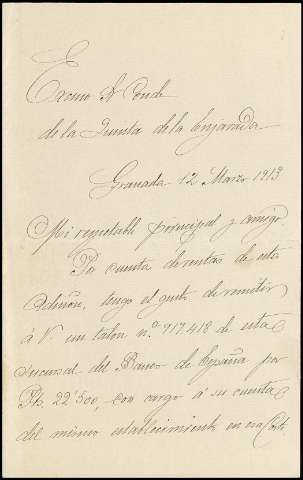 Excmo Sr Conde
de la Quinta de la Enjarada
Granada 12 Marzo 1913
Mi respetable principal y amigo:
Por cuenta de rentas de esta
Admón, tengo el gusto de remitir
á V. un talón nº 917.418 de esta
sucursal del Banco de España por
Pts. 22'500, con cargo á su cuenta
del mismo establecimiento en esa Corte